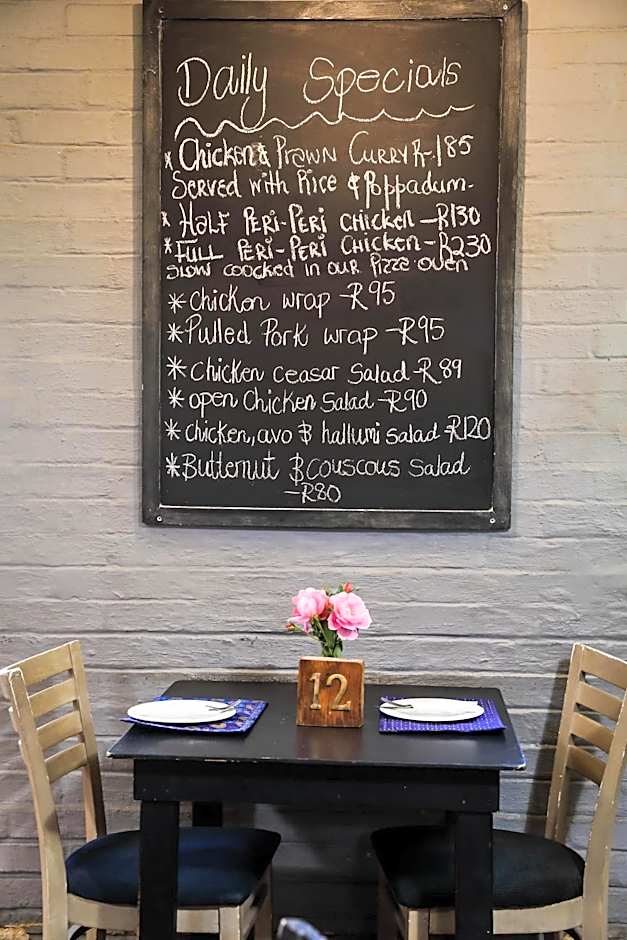 Daily Specials
* Chicken & Prawn Curry R-185
Served with Rice & Poppadum-
* Half Peri-Peri Chicken -R130
* Full Peri-Peri Chicken -R230
Slow coocked in our Pizza oven
* Chicken wrap -R95
* Pulled Pork wrap -R95
* Chicken Ceasar Salad -R89
* open Chicken Salad -R90
* chicken, avo & hallumi salad -R120
* Butternut & couscous Salad
-R80
12